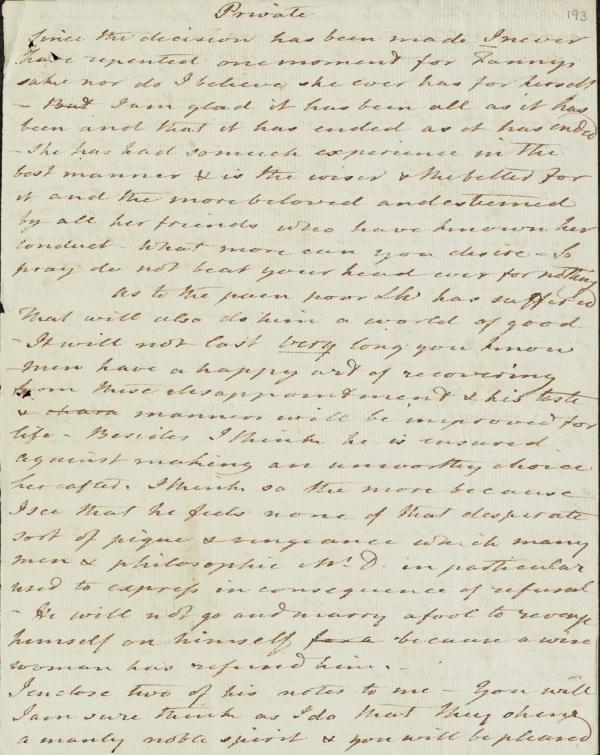 Private
193
Since the decision has been made I never
have repented one moment for Fannys
sake nor do I believe she ever has for herself
- But I am glad it has been all as it has
been and that it has ended as it has ended
- She has had so much experience in the
best manner & is the wiser & the better for
it and the more beloved and esteemed
by all her friends who have known her
conduct - What more can you desire - So
pray do not beat your head over for nothing
As to the pain poor LH has suffered
That will also do him a world of good
- It will not last very long you know
- men have a happy art of recovering
from these disappointment & his taste
& manners will be improved for
life - Besides I think he is ensured
against making an unworthy choice
hereafter. I think so the more because
I see that he feels none of that desperate
sort of pique & vengeance which many
men & philosophic Mr. D. in particular
used to express in consequence of refusal
- He will not go and marry a fool to revenge
himself on himself for a because a wise
woman has refused him. -
I enclose two of his notes to me - You will
I am sure think as I do that they shew
a manly noble spirit & you will be pleased